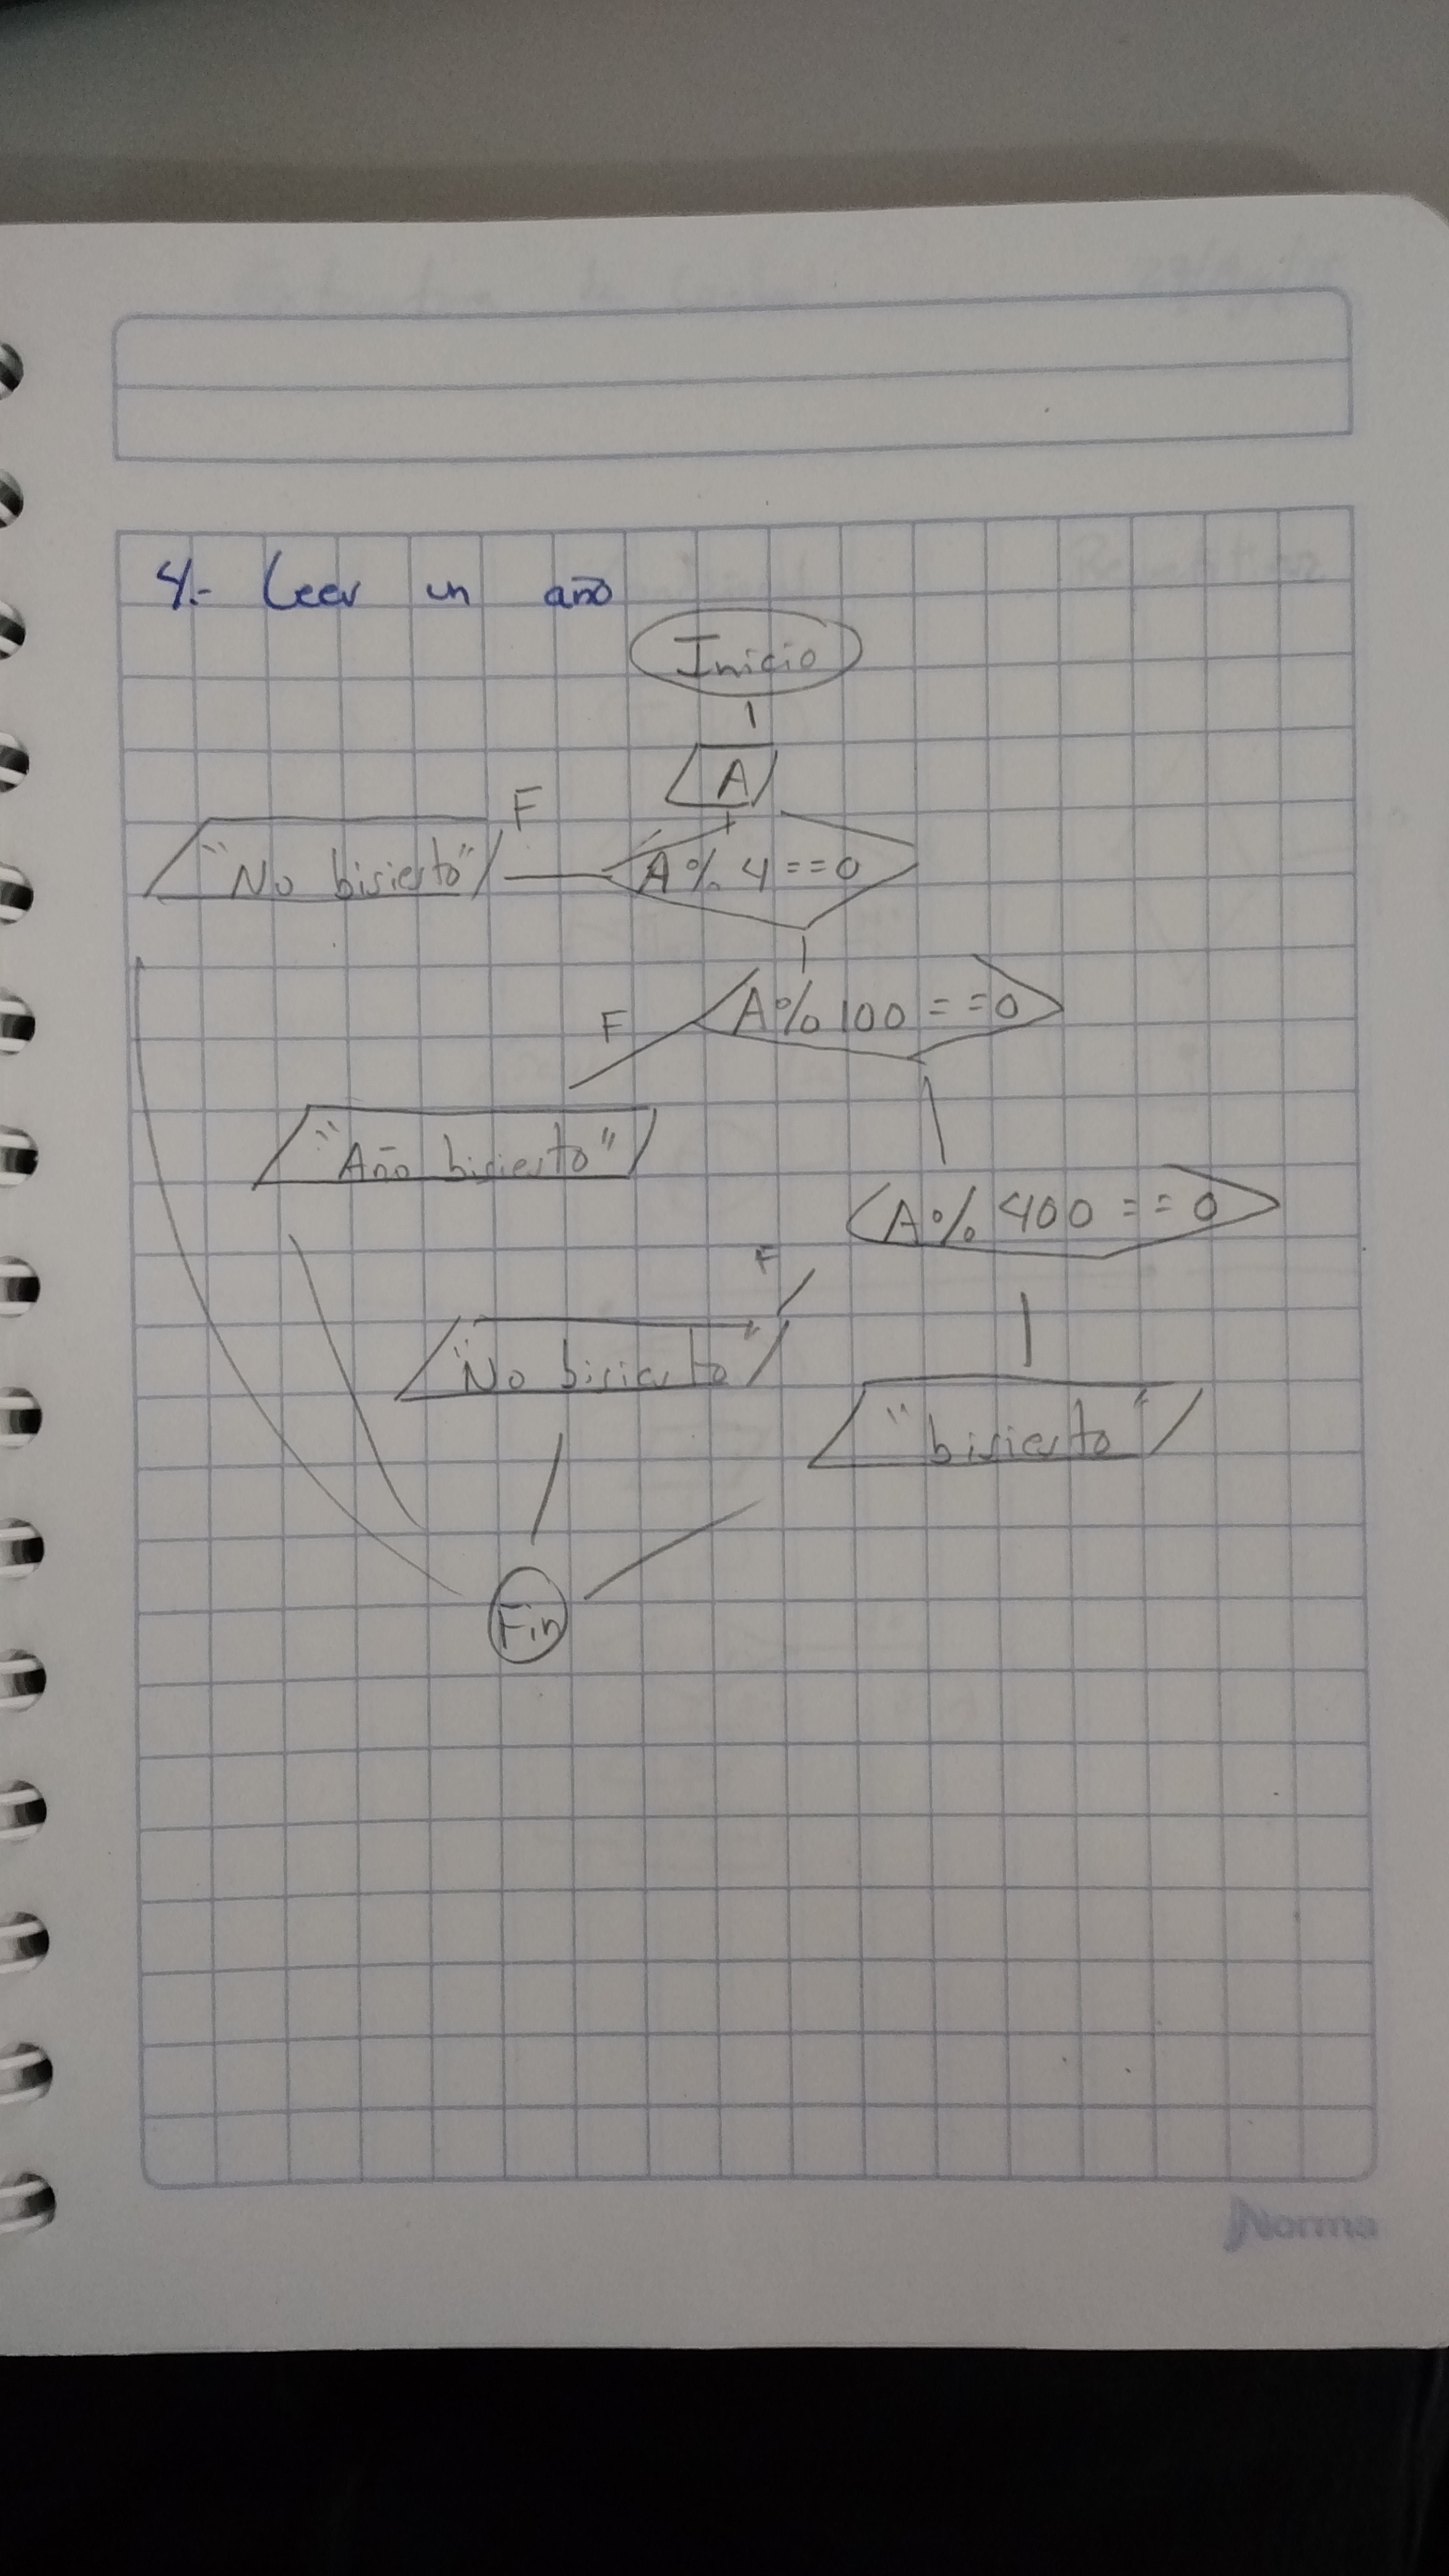 4.- Leer un año
Inicio
A
F
"No bisiesto"
A % 4 == 0
A % 100 == 0
F
"Año bisiesto"
A % 400 == 0
F
"No bisiesto"
"bisiesto"
Fin
Norma